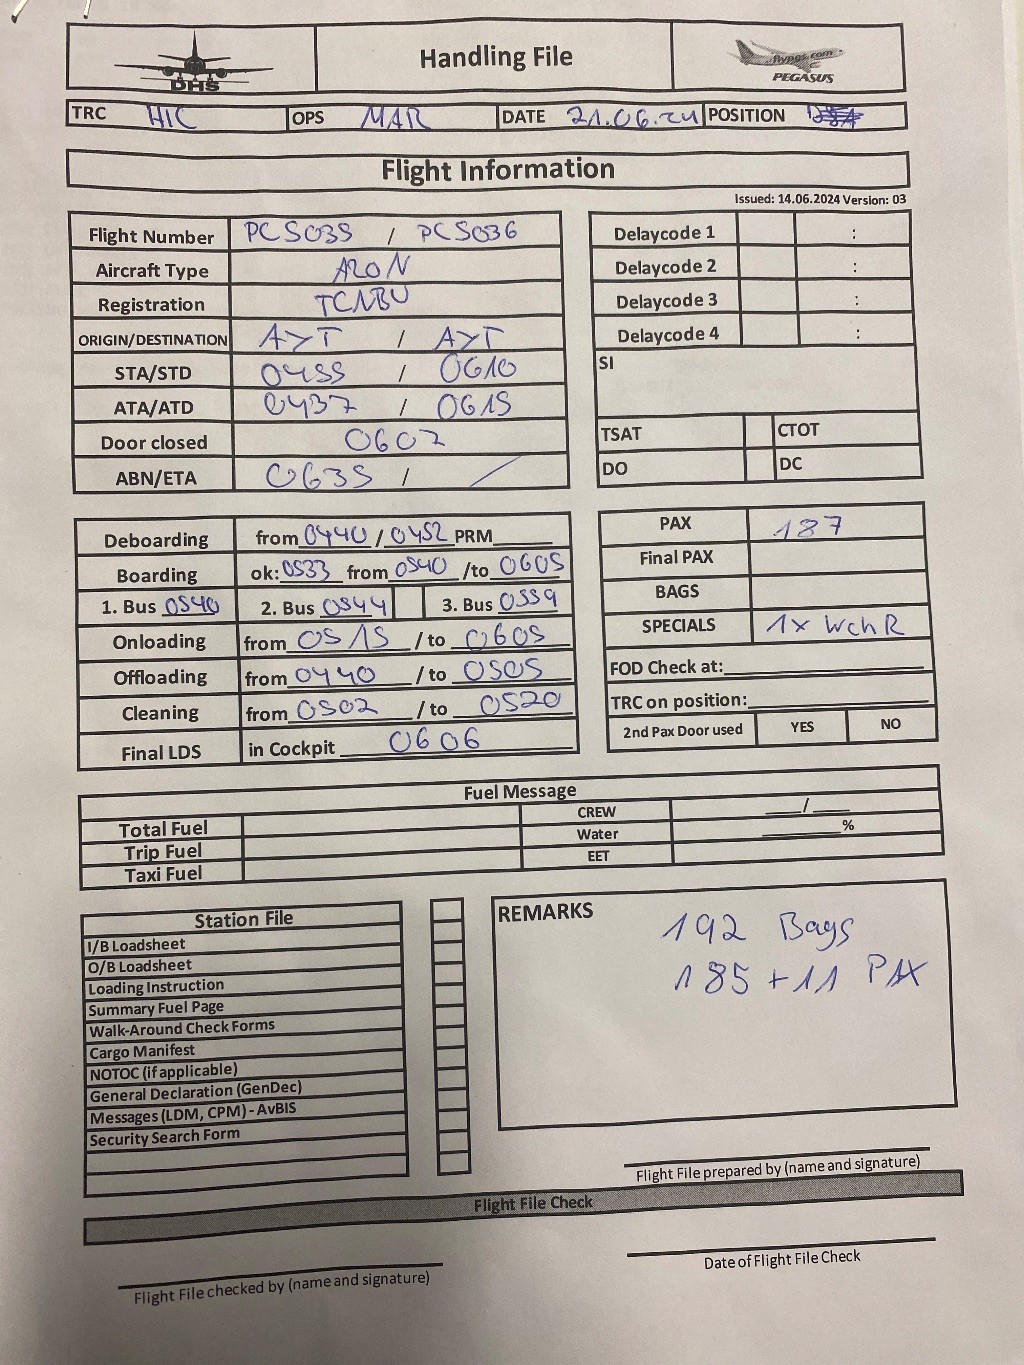 DHS
Handling File
flypgs.com
PEGASUS
TRC HIC OPS MAR DATE 21.06.24 POSITION
Flight Information
Issued: 14.06.2024 Version: 03
Flight Number PC5035 / PC5036
Aircraft Type A20N
Registration TCNBU
ORIGIN/DESTINATION AYT / AYT
STA/STD 0455 / 0610
ATA/ATD 0437 / 0615
Door closed 0607
ABN/ETA 0635 /
Delaycode 1 :
Delaycode 2 :
Delaycode 3 :
Delaycode 4 :
SI
TSAT CTOT
DO DC
Deboarding from 0440 / 0452 PRM
Boarding ok: 0533 from 0540 /to 0605
1. Bus 0540 2. Bus 0544 3. Bus 0559
Onloading from 0515 / to 0605
Offloading from 0440 / to 0505
Cleaning from 0502 / to 0520
Final LDS in Cockpit 0606
PAX 187
Final PAX
BAGS
SPECIALS 1x WchR
FOD Check at:
TRC on position:
2nd Pax Door used YES NO
Fuel Message
Total Fuel CREW /
Trip Fuel Water %
Taxi Fuel EET
Station File
I/B Loadsheet
O/B Loadsheet
Loading Instruction
Summary Fuel Page
Walk-Around Check Forms
Cargo Manifest
NOTOC (if applicable)
General Declaration (GenDec)
Messages (LDM, CPM) - AvBIS
Security Search Form
REMARKS
192 Bags
185 + 11 PAX
Flight File prepared by (name and signature)
Flight File Check
Flight File checked by (name and signature)
Date of Flight File Check